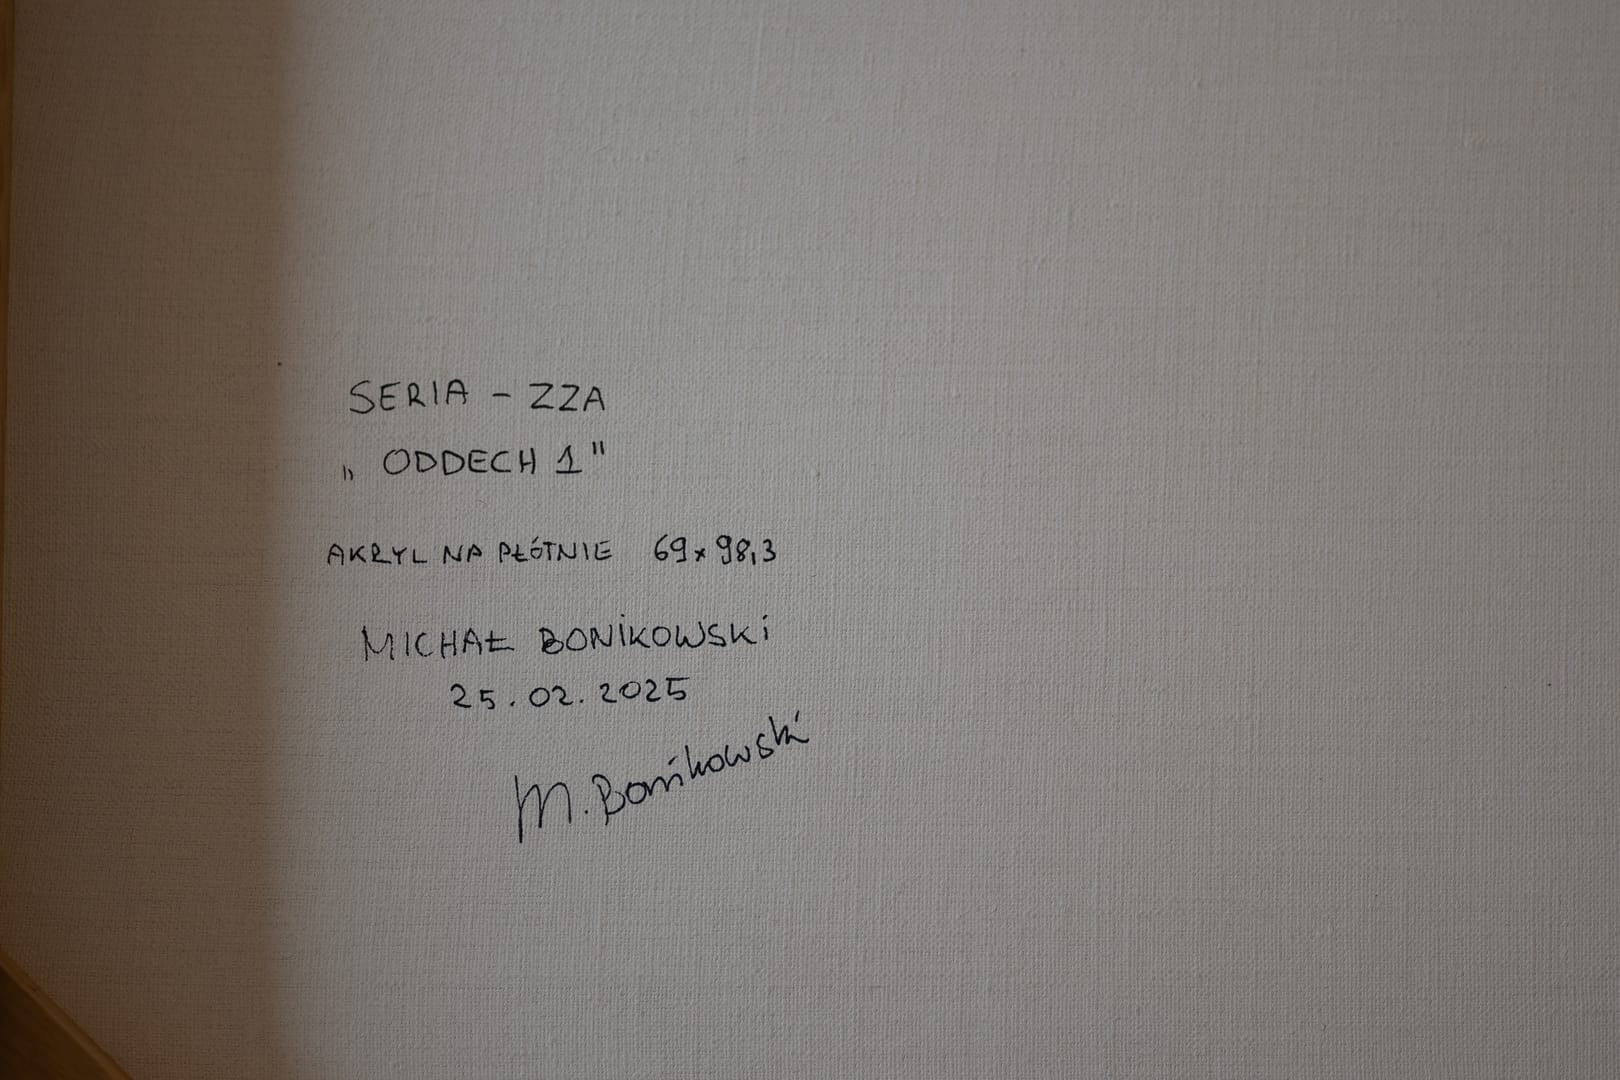 SERIA - ZZA
„ ODDECH 1"
AKRYL NA PŁÓTNIE 69 x 98,3
MICHAŁ BONIKOWSKI
25.02.2025
M. Bonikowski